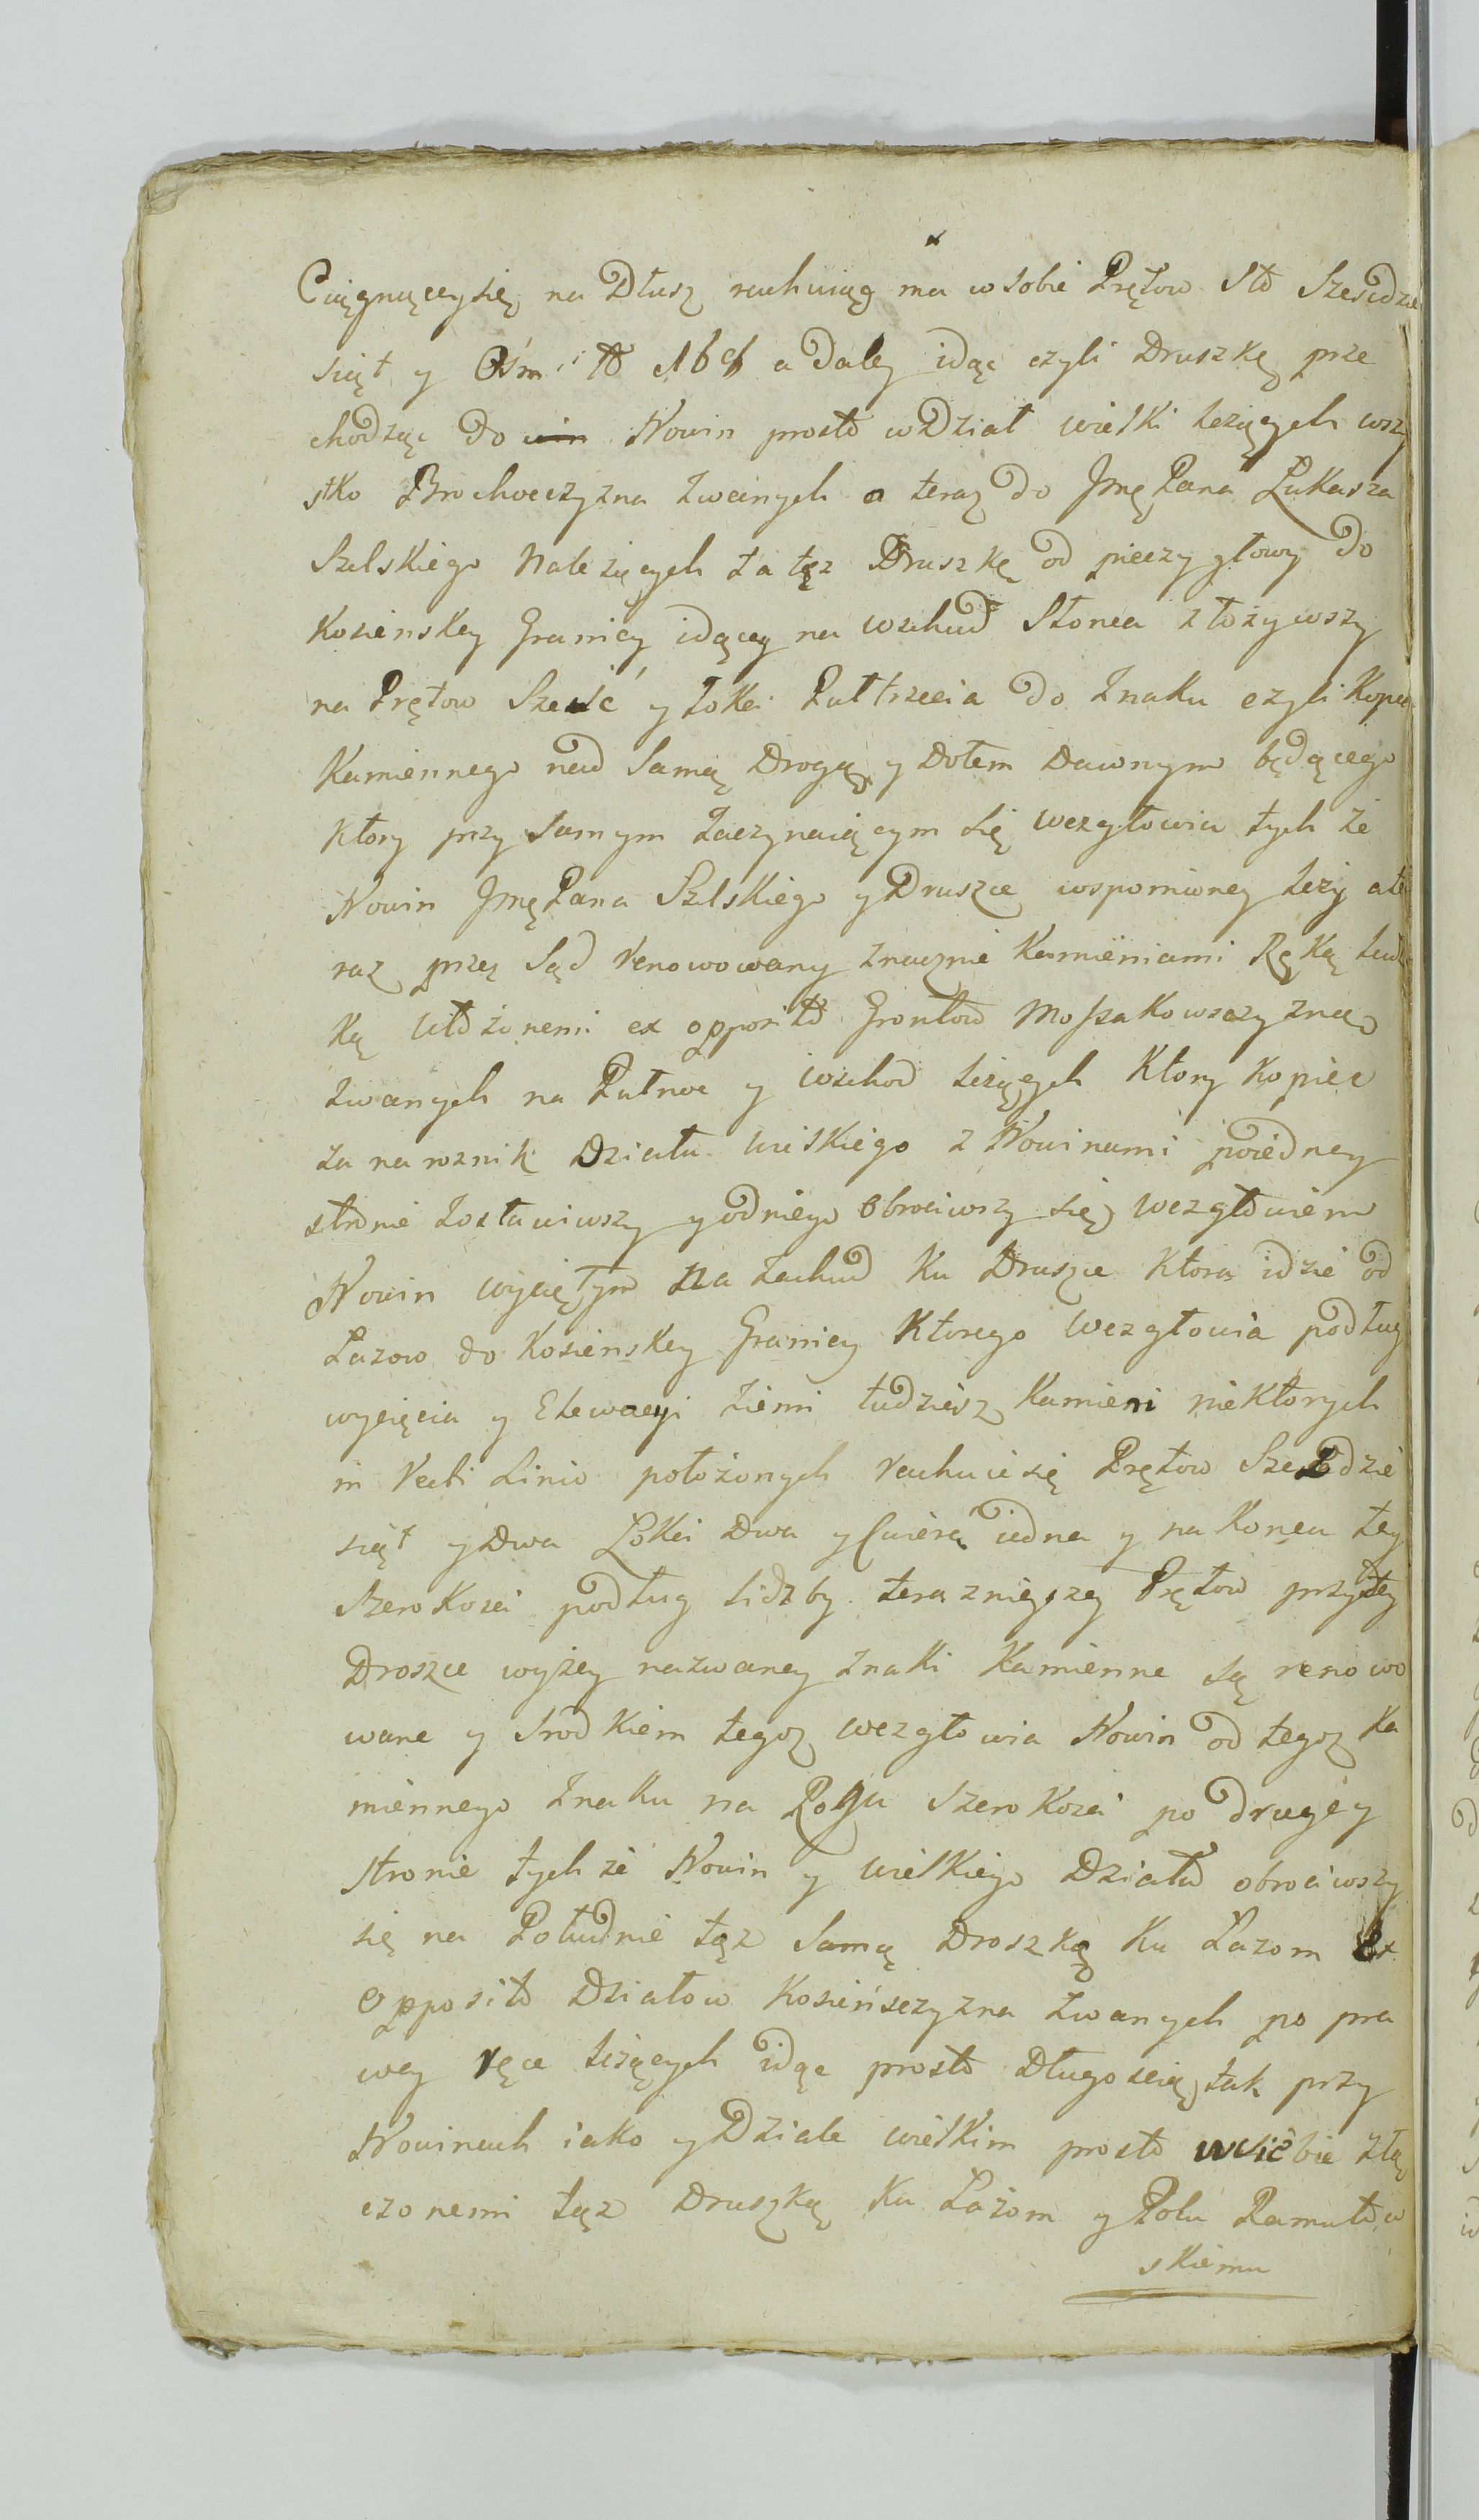 Ciągnącey się na Dłusz rachuiąg ma w sobie Prętow Sto Szescdzie
siąt y Ośm i to 168 a daley idąc czyli Druszkę prze
chodząc do win Nowin prosto w Dział wielki leżących wszy
stko Brochoczyzna zwanych a teraz do Jmę Pana Łukasza
Szelskiego należących za tęz Druszkę od pieczygłowy do
Kosienskey Granicy idącey na wschud Słonca złożywszy
na Prętow Sześć y Łokci Pułtrzecia do Znaku czyli Kopca
Kamiennego nad Samą Drogą y Dołem Dawnym będącego
Ktory przy Samym Zaczynaiącym się wezgłowiu tych że
Nowin Jmę Pana Szelskiego y Druszce wspomioney leży a te
raz przez Sąd renowowany znacznie Kamieniami Ręką ludz
ką Ułożonemi ex opposito Grontow Mossakowszczyzna
zwanych na Pułnoc y wschod leżących Ktory Kopiec
za naroznik Działu wielkiego z Nowinami po iedney
stronie zostawiwszy y od niego Obrociwszy się wezgłowiem
Nowin wyciętym na Zachud Ku Druszce Ktora idzie od
Łazow do Kosienskey Granicy Ktorego wezgłowia podług
wycięcia y Elewacyi Ziemi tudziesz Kamieni niektorych
in Recti Linio położonych rachuie się Prętow Szesdzie
siąt y Dwa Łokci Dwa y Cwierć iedna y na Koncu tey
Szerokosci podług lidzby teraznieyszey Prętow przy tey
Droszce wyżey nazwaney Znaki Kamienne są renowo
wane y Srodkiem tegoz wezgłowia Nowin od tegoz Ka
miennego Znaku na Rogu Szerokosci po drugiéy
stronie tych że Nowin y wielkiego Działu obrociwszy
się na Południe tąz Samą Droszką Ku Łazom Ex
Opposito Działow Kosieńsczyzna zwanych po pra
wey ręce leżących idąc prosto Długoscią tak przy
Nowinach iako y Dziale wielkim prosto w siebie złą
czonemi tąz Druszką Ku Łazom y Polu Ramułtow
skiemu